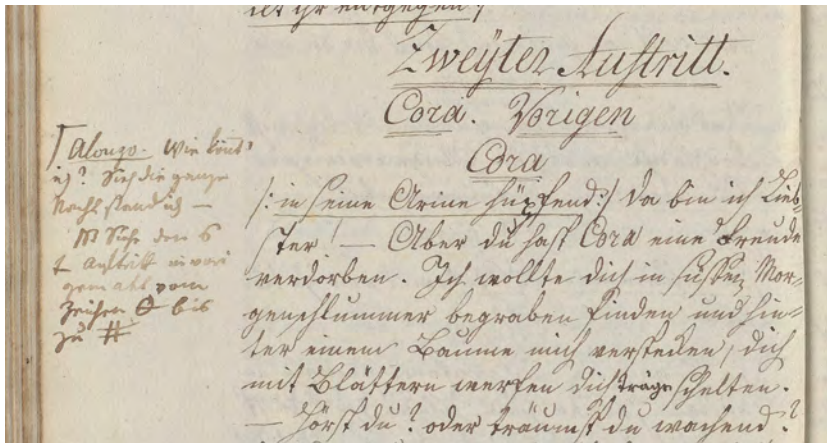 ihr entgegen:/
Zweÿter Auftritt.
Cora. Vorigen
Cora
/: in seine Arme hüpfend:/ Da bin ich Lieb-
ster! — Aber du hast Cora eine Freude
verdorben. Ich wollte dich in süssen Mor-
genschlummer begraben finden und hin-
ter einem Baume mich verstecken, dich
mit Blättern werfen dich träge schelten.
— Hörst du? oder träumst du wachend?
Alonzo. Wie könt'
ich? Sieh die ganze
Nacht stand ich —
NB Siehe den 6
t Auftritt im vori
gen akt vom
Zeichen bis
zu #